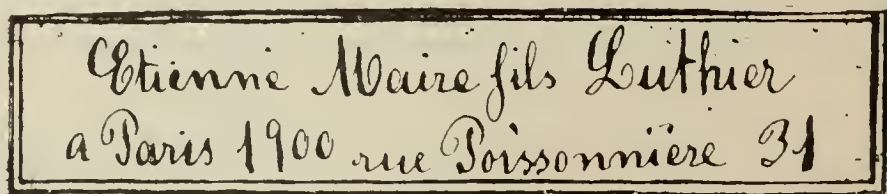 Etienne Maire fils Luthier
a Paris 1900 rue Poissonnière 31